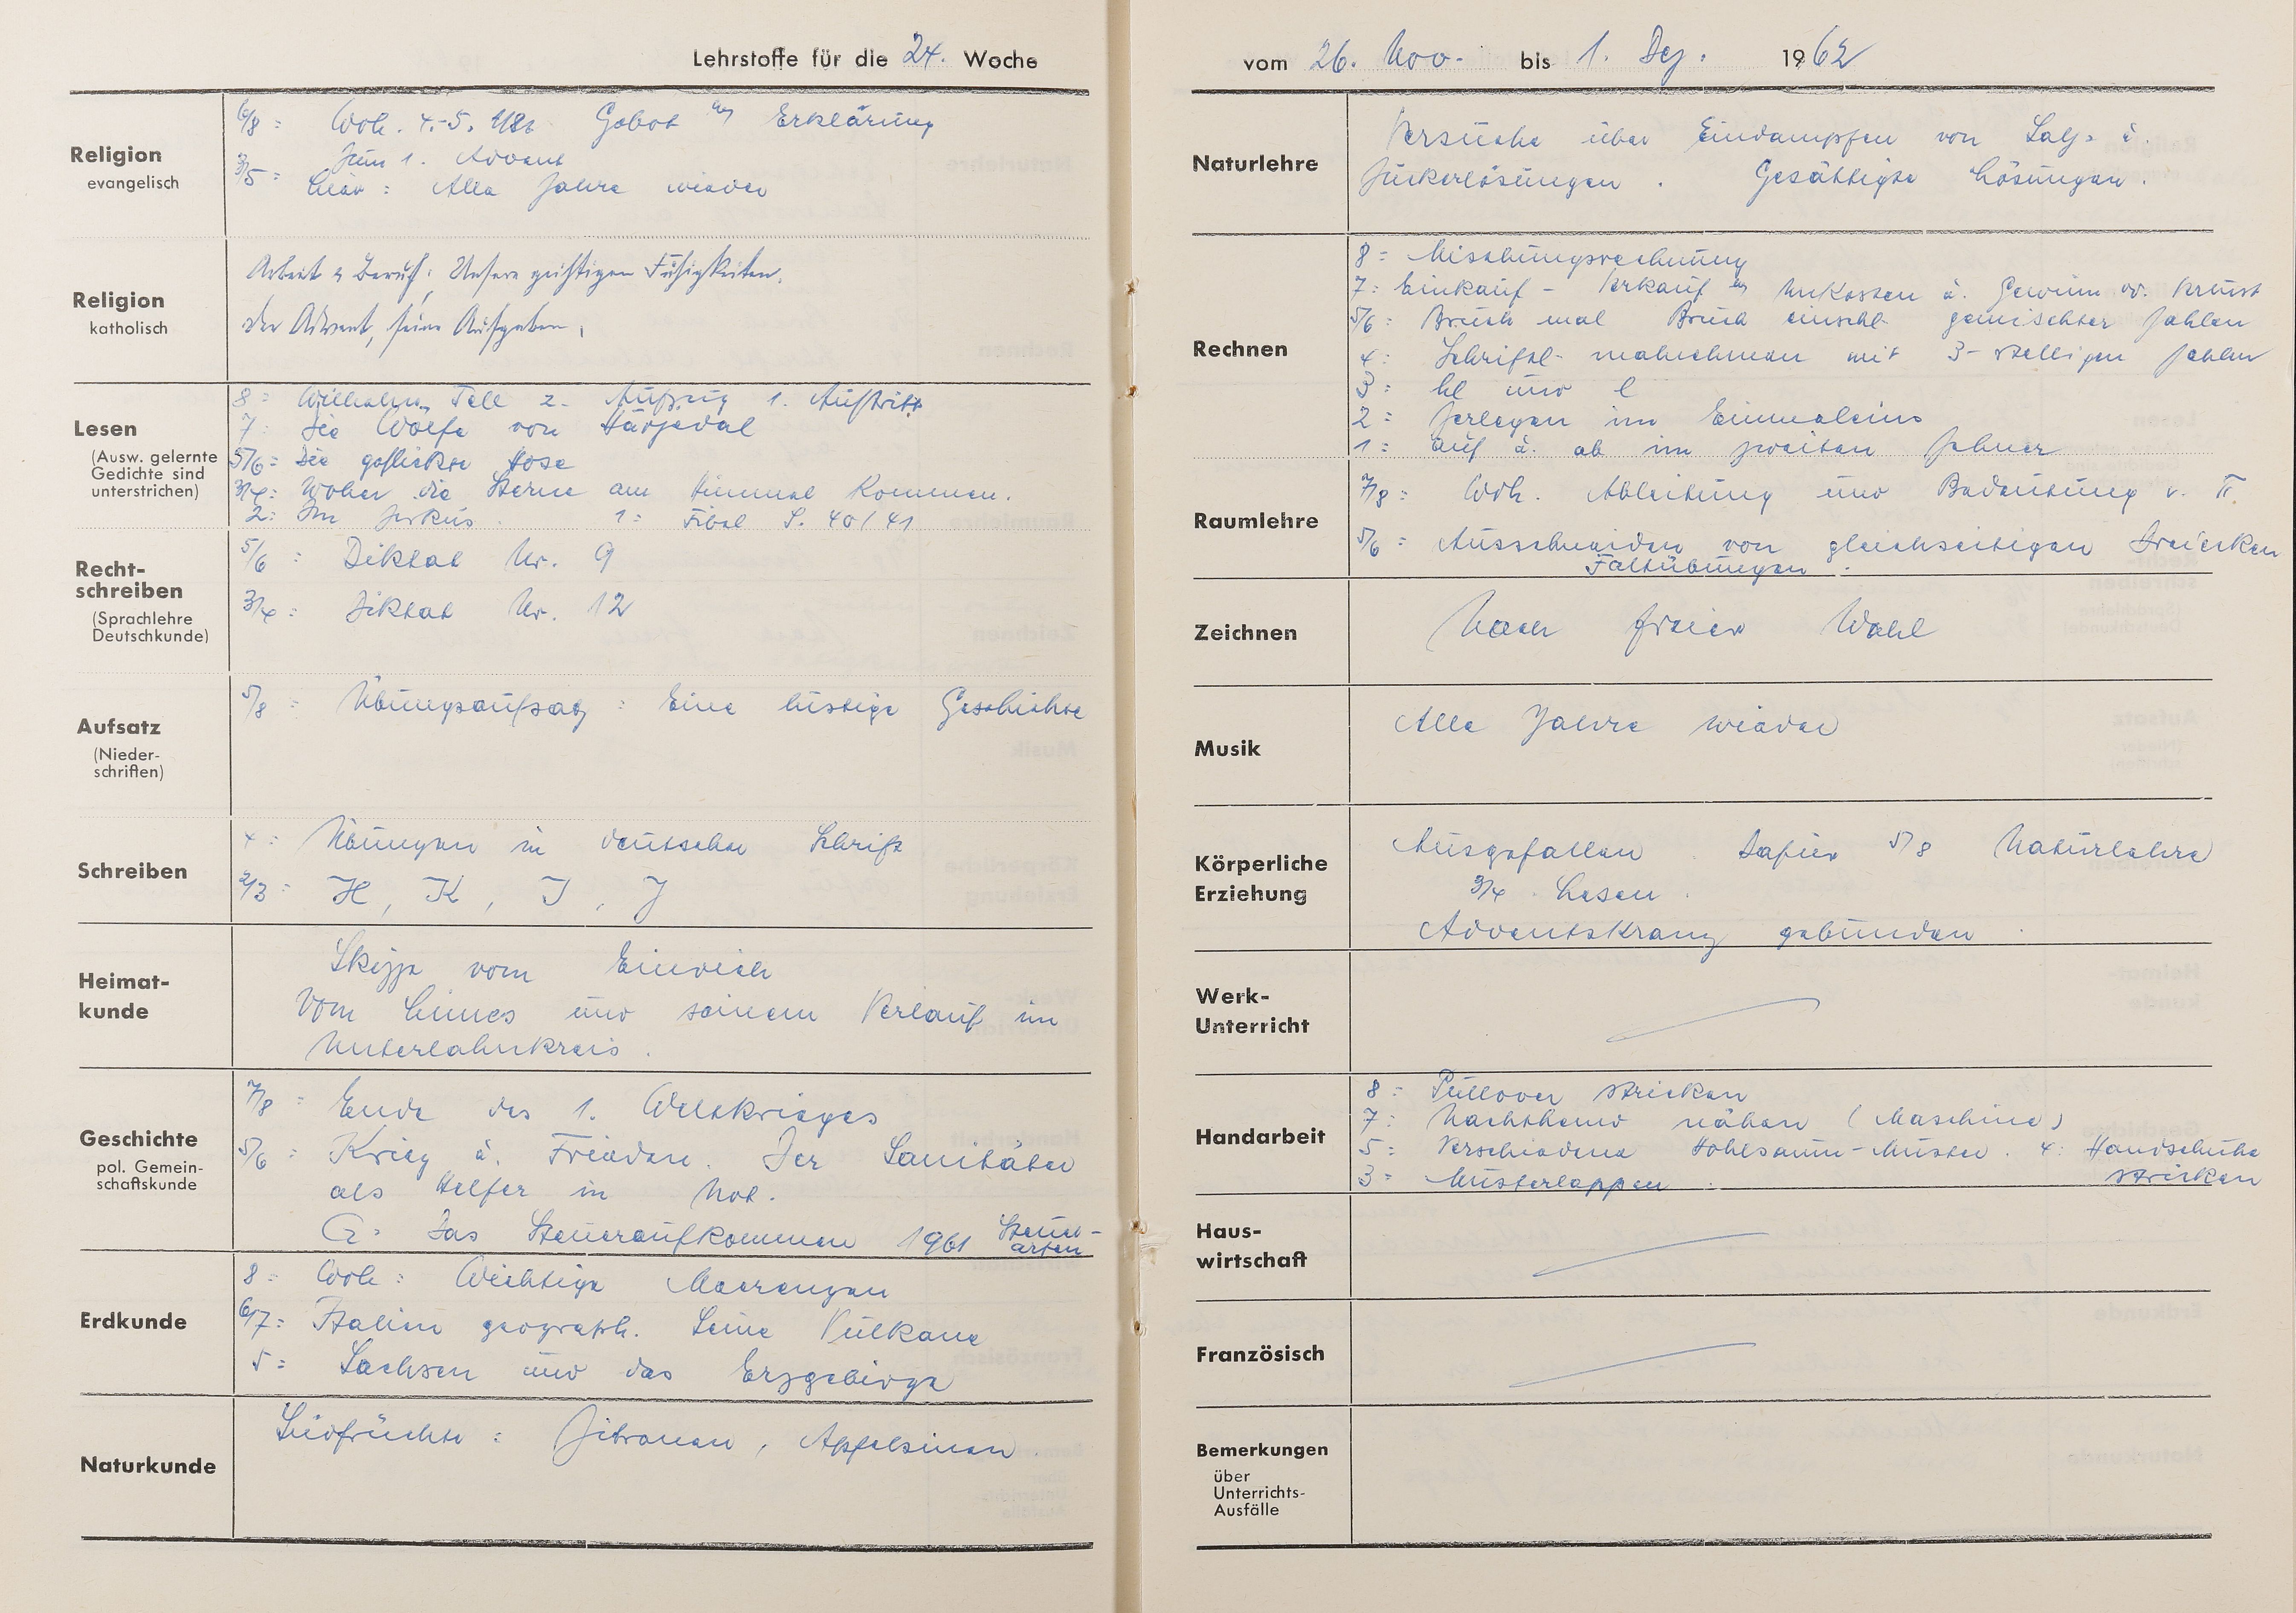 Lehrstoffe für die 24. Woche
Religion
evangelisch
6/8 = Wdh. 4.-5. Gebot Erklärung
Zum 1. Advent
3/5 = Lied: Alle Jahre wieder
Religion
katholisch
Arbeit u Beruf; Unsere geistigen Fähigkeiten.
Der Advent, seine Aufgaben.
Lesen
(Ausw. gelernte
Gedichte sind
unterstrichen)
8 = Wilhelm Tell 2. Aufzug 1. Auftritt
7: Die Wölfe von Härjedal
5/6 = Die geflickte Hose
3/4: Woher die Sterne am Himmel kommen.
2: Im Zirkus. 1: Fibel S. 40/41
Recht-
schreiben
(Sprachlehre
Deutschkunde)
5/6 = Diktat Nr. 9
3/4 = Diktat Nr. 12
Aufsatz
(Nieder-
schriften)
5/8 = Übungsaufsatz: Eine lustige Geschichte
Schreiben
4: Übungen in deutscher Schrift
2/3 = H, K, I, J
Heimat-
kunde
Skizze vom Einrich
Vom Limes und seinem Verlauf im
Unterlahnkreis.
Geschichte
pol. Gemein-
schaftskunde
7/8 = Ende des 1. Weltkrieges
5/6 = Krieg u. Frieden. Der Sanitäter
als Helfer in Not.
G = Das Steueraufkommen 1961 Steuer-
arten
Erdkunde
8 = Wdh: Wichtige Meerengen
6/7 = Italien geograph. Seine Vulkane
5 = Sachsen und das Erzgebirge
Naturkunde
Südfrüchte: Zitronen, Apfelsinen.
vom 26. Nov. bis 1. Dez. 1962
Naturlehre
Versuche über Eindampfen von Salz- u.
Zuckerlösungen. Gesättigte Lösungen.
Rechnen
8 = Mischungsrechnung
7: Einkauf - Verkauf Unkosten u. Gewinn od. Verlust
5/6: Bruch mal Bruch einschl. gemischter Zahlen
4: Schriftl. malnehmen mit 3-stelligen Zahlen
3: hl und l
2 = Zerlegen im Einmaleins
1 = auf u. ab im zweiten Zehner
Raumlehre
7/8 = Wdh. Ableitung und Bedeutung v. π.
5/6 = Ausschneiden von gleichseitigen Dreiecken
Faltübungen.
Zeichnen
Nach freier Wahl
Musik
Alle Jahre wieder
Körperliche
Erziehung
Ausgefallen. Dafür 5/8 Naturlehre
3/4 Lesen.
Adventskranz gebunden.
Werk-
Unterricht
Handarbeit
8 = Pullover stricken
7: Nachthemd nähen (Maschine)
5 = Verschiedene Hohlsaum-Muster. 4: Handschuhe
stricken
3 = Musterlappen.
Haus-
wirtschaft
Französisch
Bemerkungen
über
Unterrichts-
Ausfälle